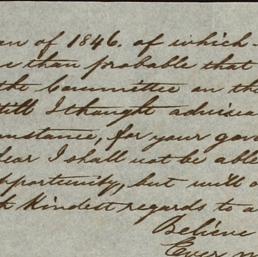 an of 1846. of which
than probable that
the Committee on the
still I thought advisa
umstance, for your gov
fear I shall not be able
pportunity, but will
kindest regards to a
Believe
Ever m